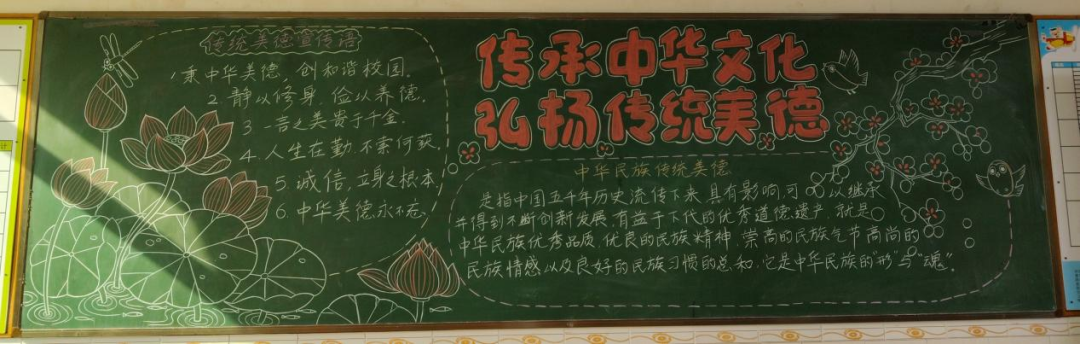 传统美德宣传语
1 秉中华美德，创和谐校园。
2. 静以修身，俭以养德。
3 一言之美贵于千金.
4. 人生在勤，不索何获
5. 诚信，立身之根本
6. 中华美德永不忘。
传承中华文化
弘扬传统美德
中华民族传统美德
是指中国五千年历史流传下来，具有影响，可以继承
并得到不断创新发展，有益于下代的优秀道德遗产。就是
中华民族优秀品质、优良的民族精神、崇高的民族气节、高尚的
民族情感以及良好的民族习惯的总和。它是中华民族的“形”与“魂”。